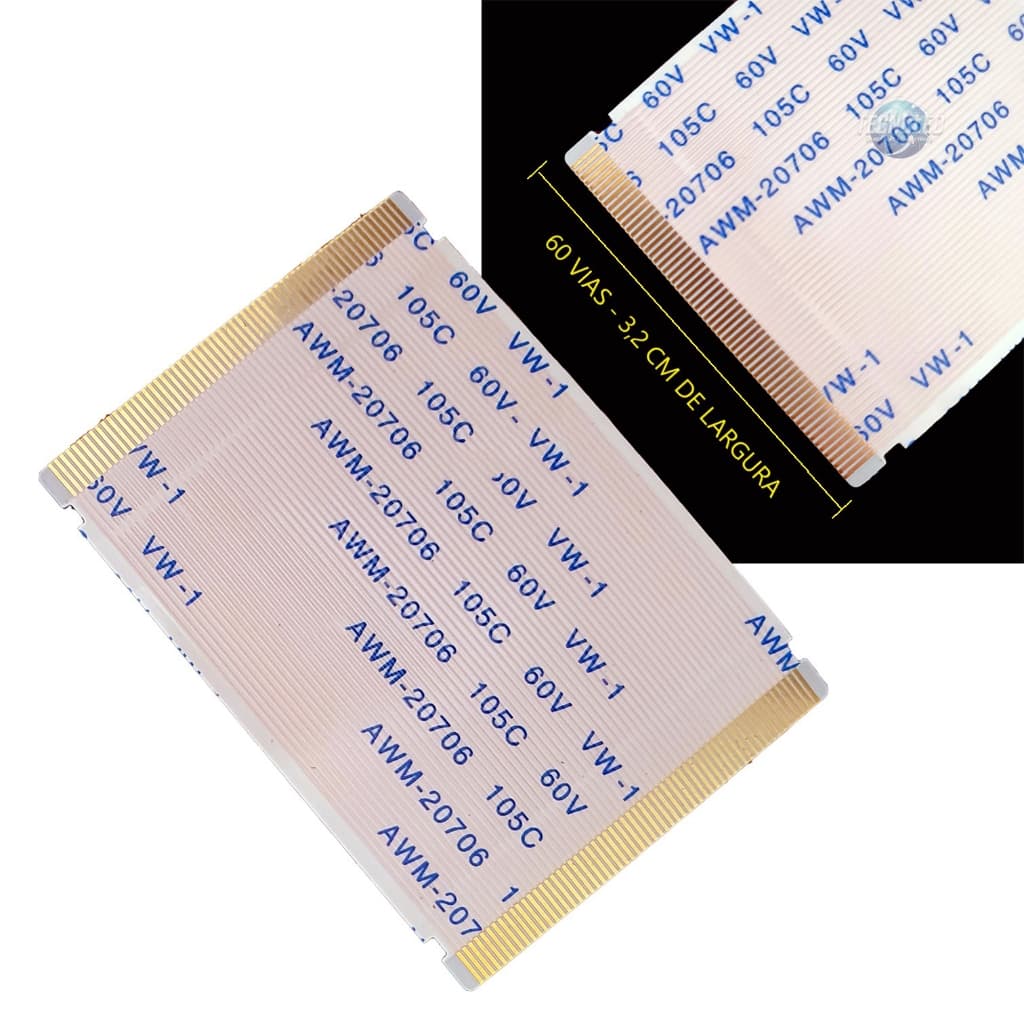 60V VW-1
105C 60V VW-1
-20706 105C 60V VW-
AWM-20706 105C 60V
AWM-20706 105C 60
AWM-20706
AWM
VW-1
60V VW-1
60 VIAS - 3,2 CM DE LARGURA
5C 60V VW-1
6 105C 60V- VW-1
-20706 105C 60V VW-1
AWM-20706 105C 60V VW-1
AWM-20706 105C 60V VW-1
AWM-20706 105C 60V
AWM-20706 105C
AWM-20706 1
AWM-207
AWM
VW-1
60V VW-1